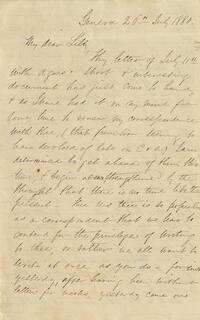 Geneva 26th July 1880.
My dear
Thy letter of July 11th
with a great & short & interesting
document has just come to hand,
& as I have had it on my mind for
some time to renew my correspondence
with thee, (that function seeming to
have devolved of late on C & A.) I am
determined to get ahead of them this
time, & begin strengthened by the
thought that there is no time like the
present. Thee sees thee is so popular
as a correspondent that we have to
contend for the privilege of writing
to thee, or rather we all want to
write at once as you do - for
yesterday, after having been without
letters for weeks, yesterday came one